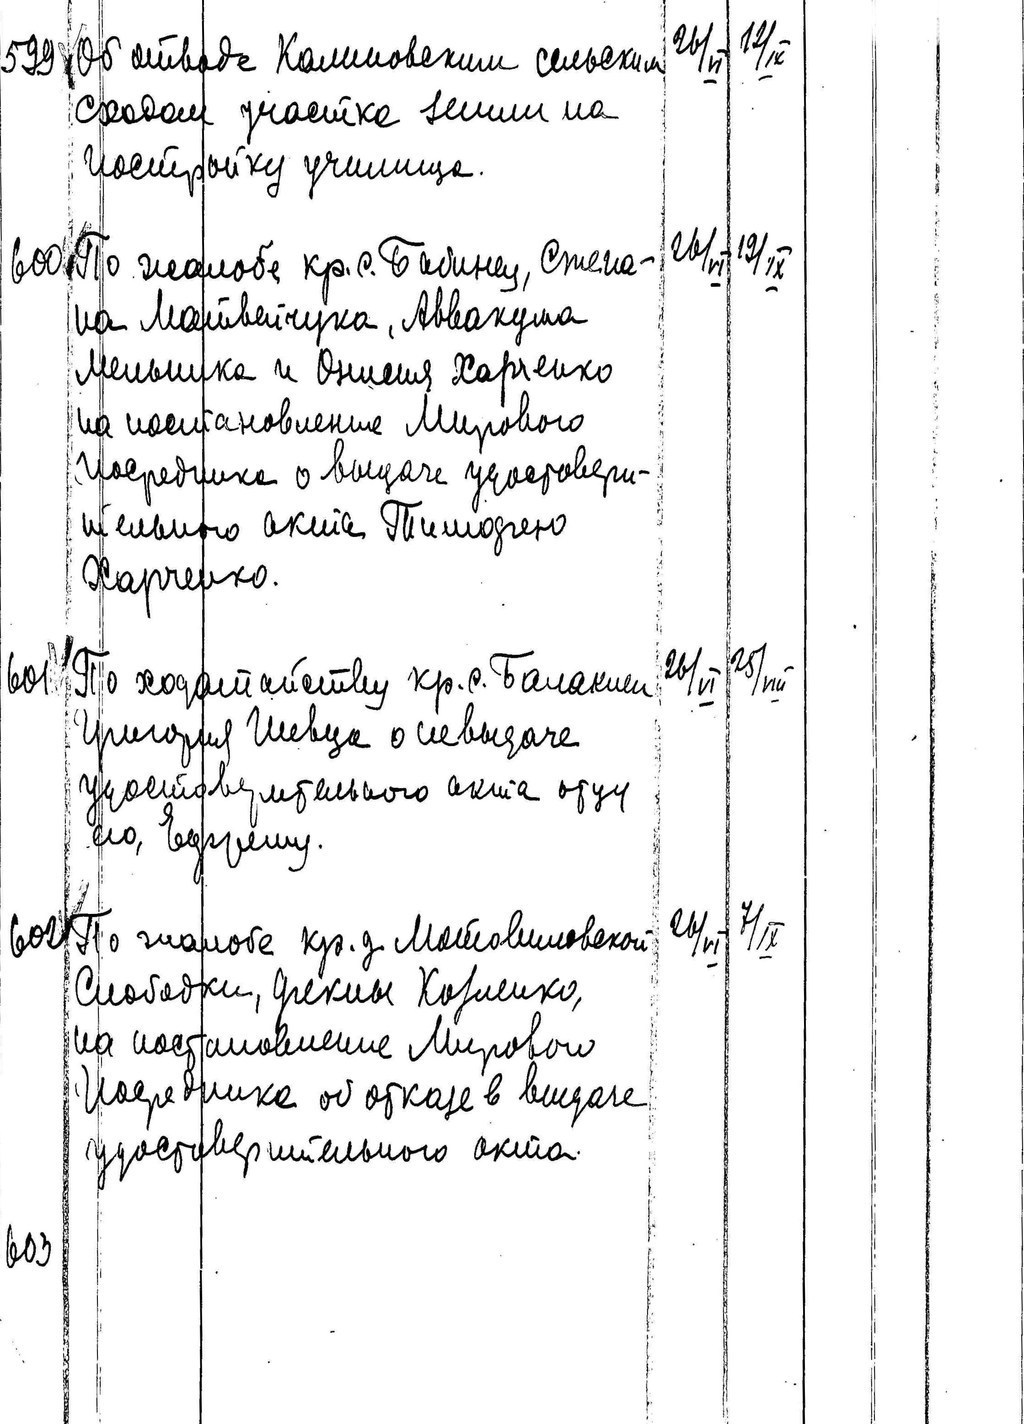 599 Об отводе Калиновским сельским 26/VI 12/IX
сходом участка земли на
постройку училища.
600 По жалобе кр. с. Бабинец, Степа- 26/VI 19/IX
на Матвейчука, Аввакума
Мельника и Онисия Харченко
на постановление Мирового
Посредника о выдаче удостовери-
тельного акта Тимофею
Харченко.
601 По ходатайству кр. с. Балаклеи 26/VI 25/VIII
Григория Шевца о невыдаче
удостоверительного акта отцу
его, Ефрему.
602 По жалобе кр. д. Мотовиловской 26/VI 7/IX
Слободки, Феклы Козленко,
на постановление Мирового
Посредника об отказе в выдаче
удостоверительного акта.
603